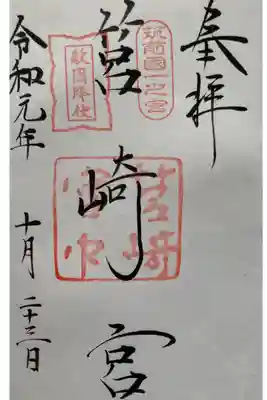 奉拝
筑前國一之宮
敵国降伏
筥崎宮
筥崎宮印
令和元年 十月 二十三日